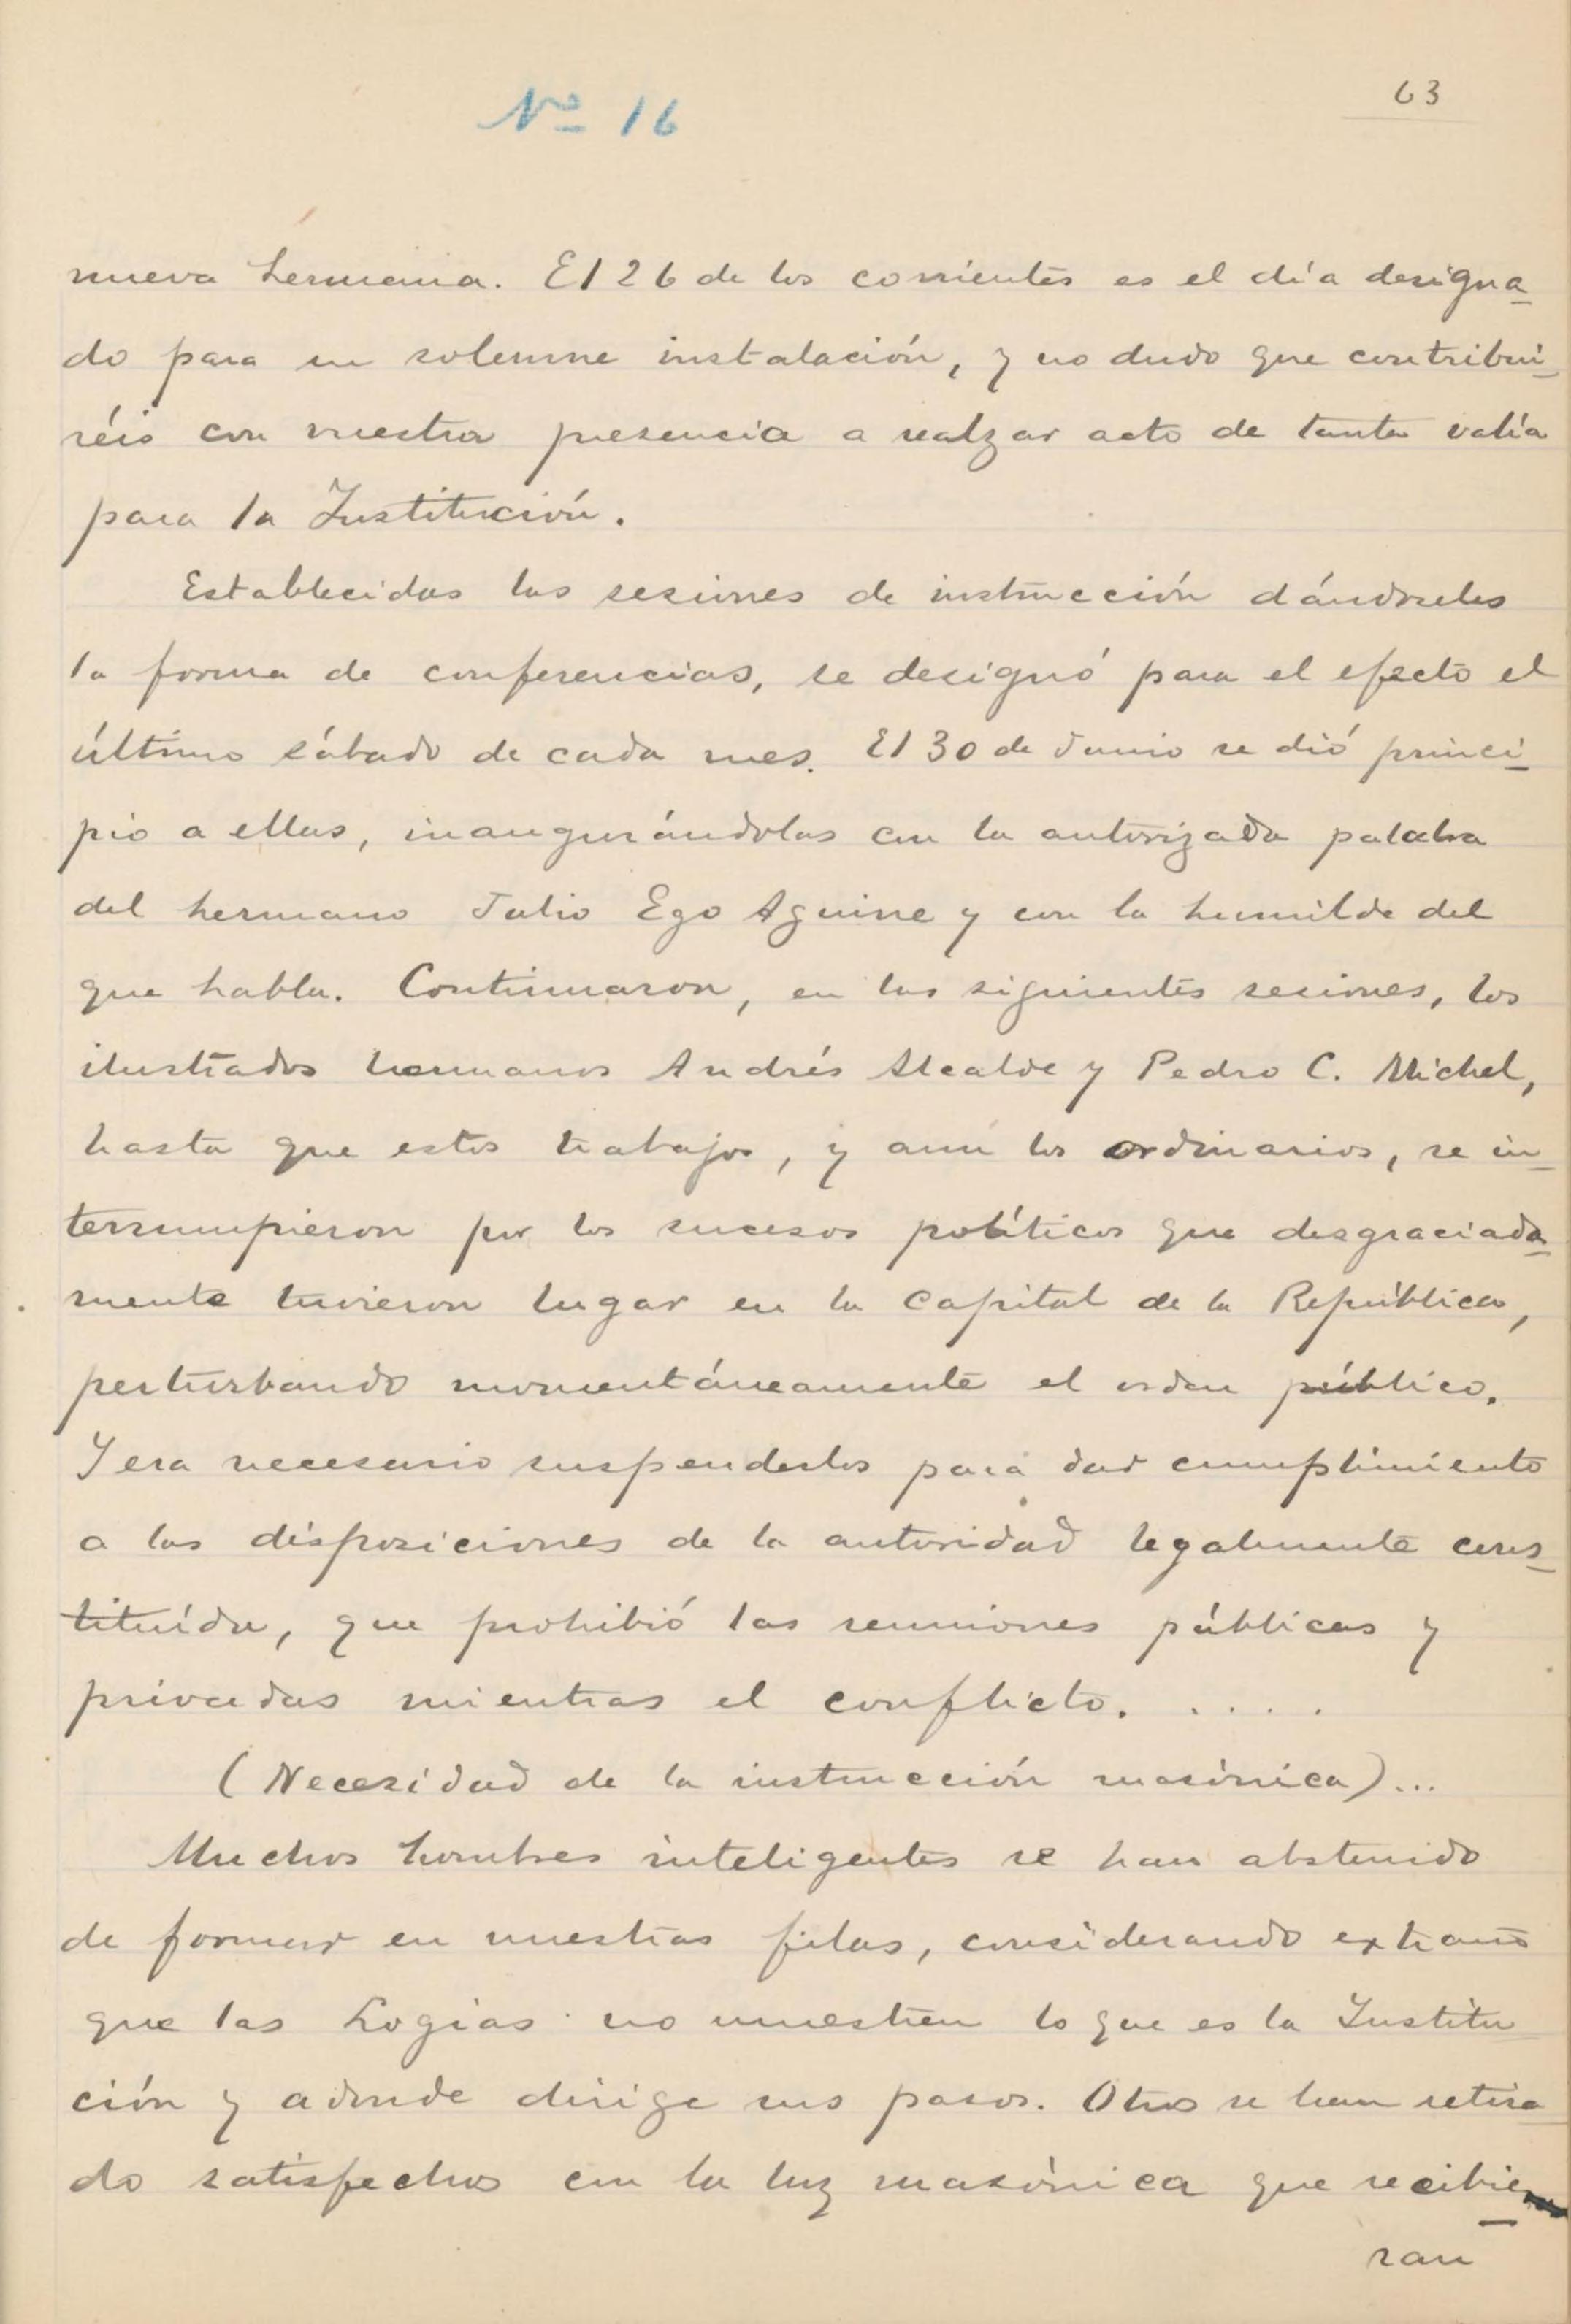 Nº 16
63
nueva hermana. El 26 de los corrientes es el día designa-
do para su solemne instalación, y no dudo que contribui-
réis con vuestra presencia a realzar acto de tanta valía
para la Institución.
Establecidas las sesiones de instrucción dándoseles
la forma de conferencias, se designó para el efecto el
último sábado de cada mes. El 30 de Junio se dió princi-
pio a ellas, inaugurándolas con la autorizada palabra
del hermano Julio Ego Aguirre y con la humilde del
que habla. Continuaron, en las siguientes sesiones, los
ilustrados hermanos Andrés Alcalde y Pedro C. Michel,
hasta que estos trabajos, y aun los ordinarios, se in-
terrumpieron por los sucesos políticos que desgraciada-
mente tuvieron lugar en la Capital de la República,
perturbando momentáneamente el orden público.
Y era necesario suspenderlos para dar cumplimiento
a las disposiciones de la autoridad legalmente cons-
tituída, que prohibió las reuniones públicas y
privadas mientras el conflicto. . . . .
(Necesidad de la instrucción masónica)...
Muchos hombres inteligentes se han abstenido
de formar en nuestras filas, considerando extraño
que las Logias no muestren lo que es la Institu
ción y adonde dirige sus pasos. Otros se han retira
do satisfechos con la luz masónica que recibie-
ran